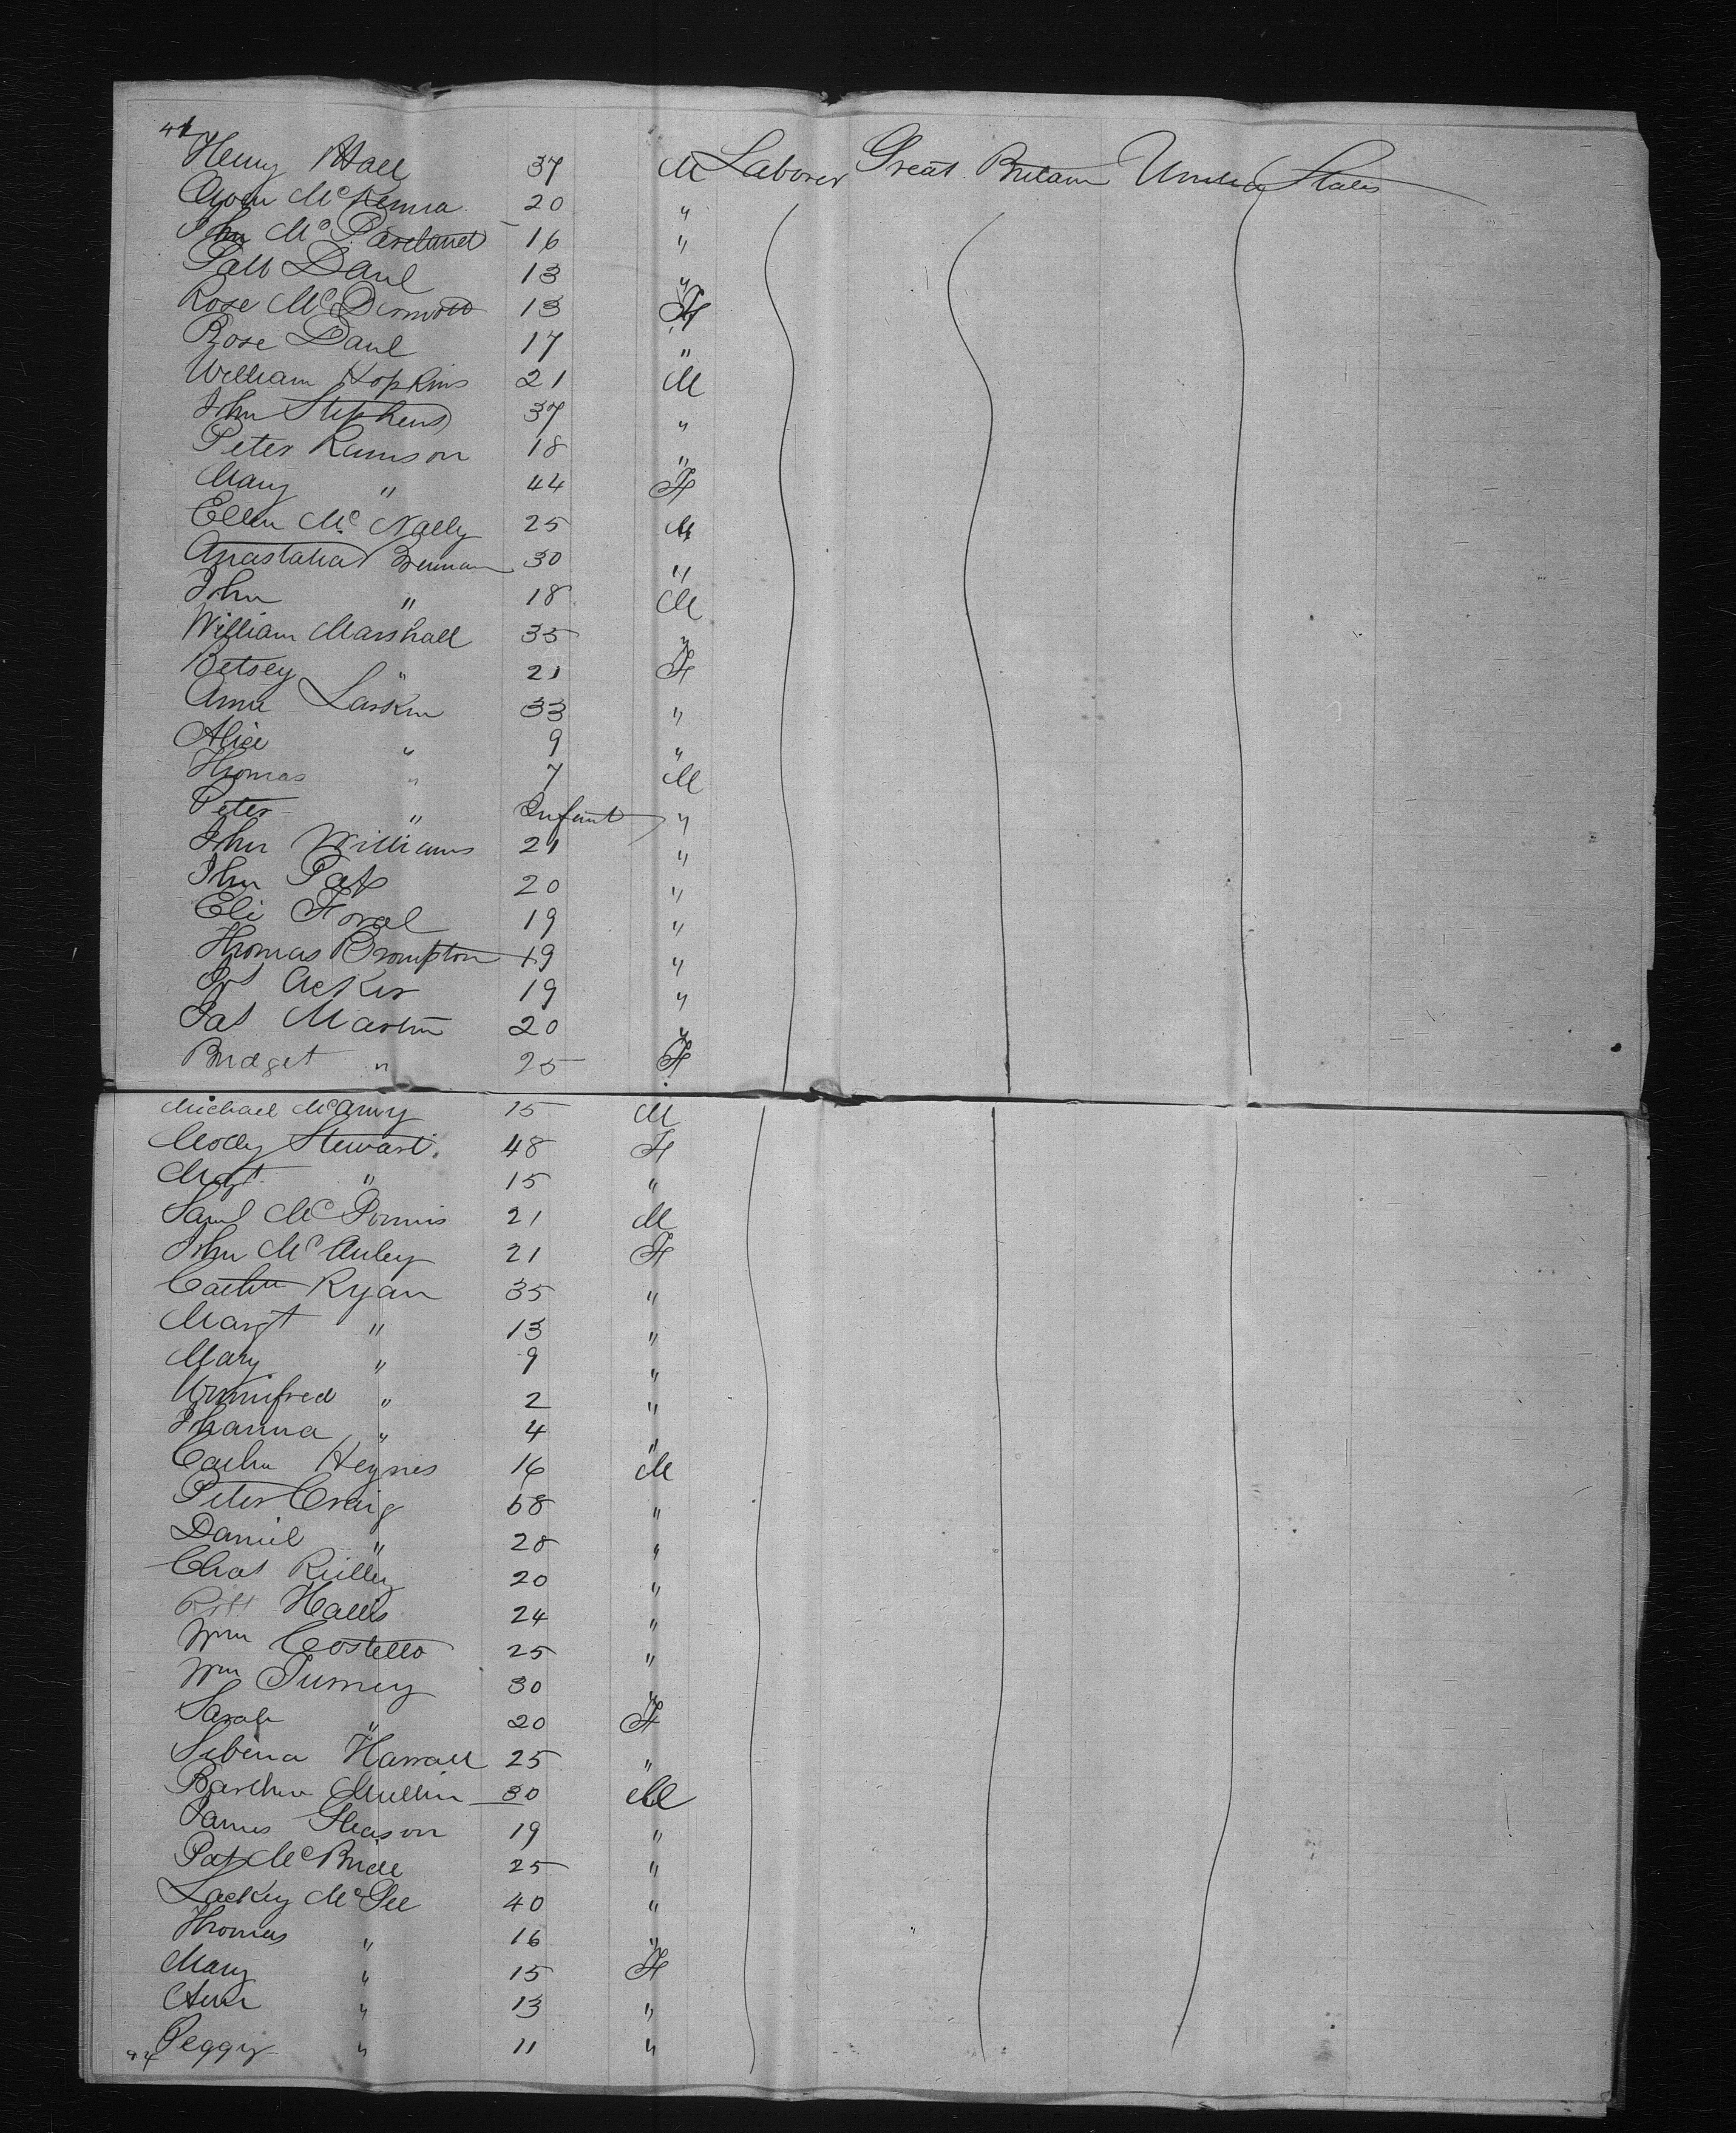 Henry Hall 37 M Laborer Great Britain United States
Owen McKenna 20 "
John McPartland 16 "
Patt Danl 13 "
Rose McDermott 13 F
Rose Danl 17 "
William Hopkins 21 M
John Stephens 37 "
Peter Ramson 18 "
Mary " 44 F
Ellen McNally 25 M
Anastatia Brennan 30 "
John " 18 M
William Marshall 35 "
Betsey " 21 F
Anne Larkin 33 "
Alice " 9 "
Thomas " 7 M
Peter " Infant "
John Williams 21 "
John Pat 20 "
Eli Foral 19 "
Thomas Brompton 19 "
Acker 19 "
Pat Martin 20 "
Bridget " 25 F
Michael McAnry 15 M
Molly Stewart 48 F
Margt " 15 "
Saml Mc 21 M
John McAuley 21 F
Cathn Ryan 35 "
Margt " 13 "
Mary " 9 "
Winnifred " 2 "
Johanna " 4 "
Cathn Heynes 16 M
Peter Craig 68 "
Daniel " 28 "
Chas Reilly 20 "
Robt Halls 24 "
Wm Costello 25 "
Wm Turney 30 "
Sarah " 20 F
Sebina Harrall 25 "
Barthw Mullin 30 M
James Gleason 19 "
Pat McBride 25 "
Lackey McGee 40 "
Thomas " 16 "
Mary " 15 F
Ann " 13 "
Peggy " 11 "